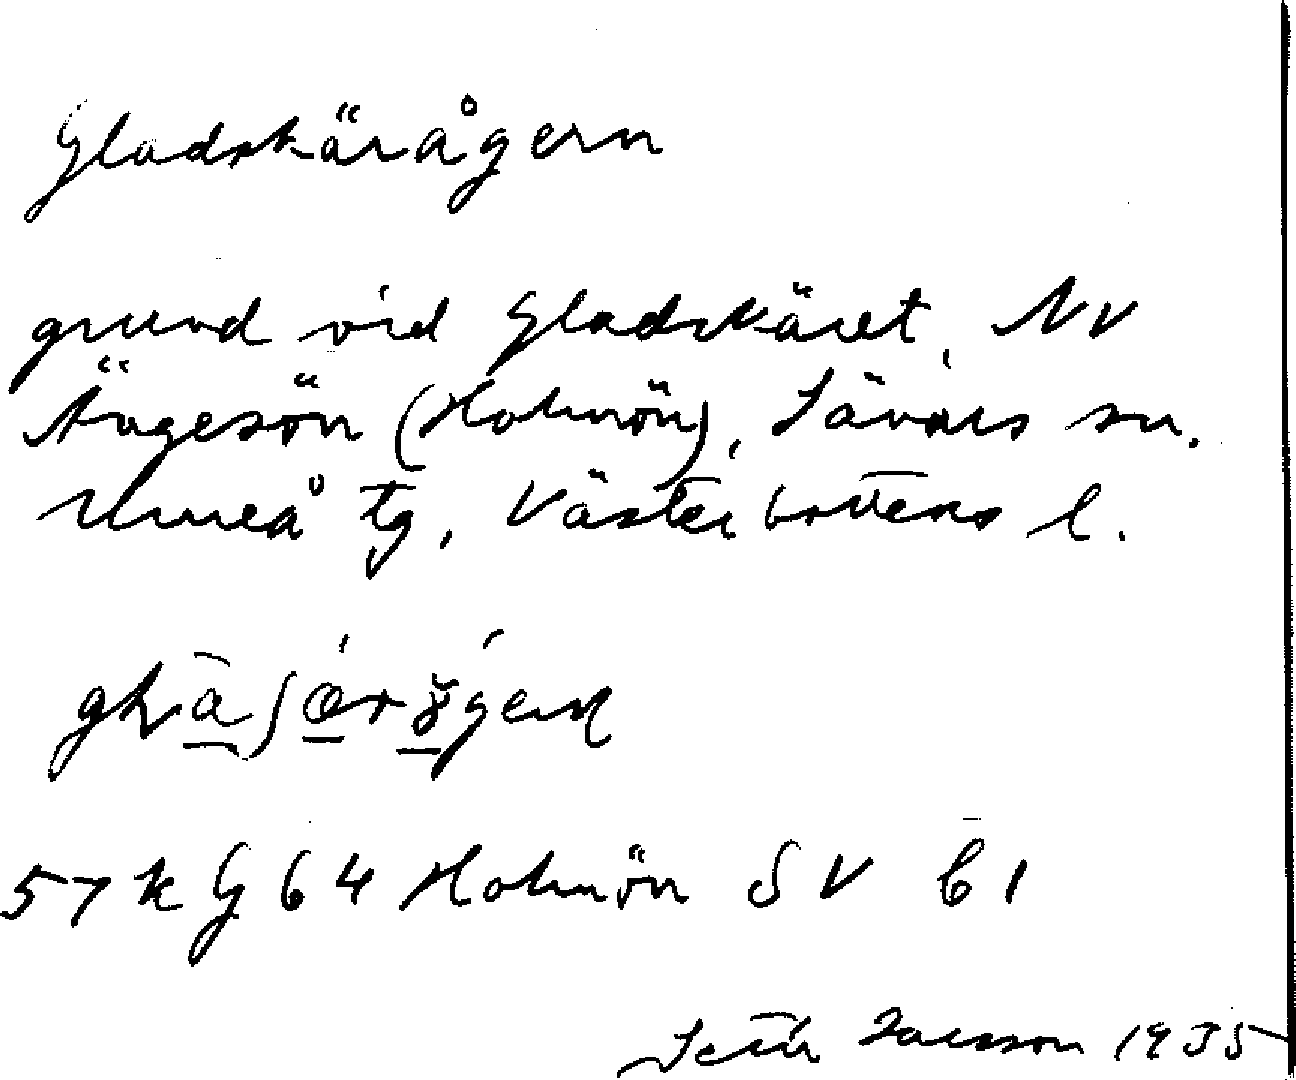 Gladskärågern
grund vid Gladskäret, NV
Ängesön (Holmön), Sävars sn.
Umeå tg, Västerbottens l.
57 k G 64 Holmön SV b 1
Seth Jansson 1935